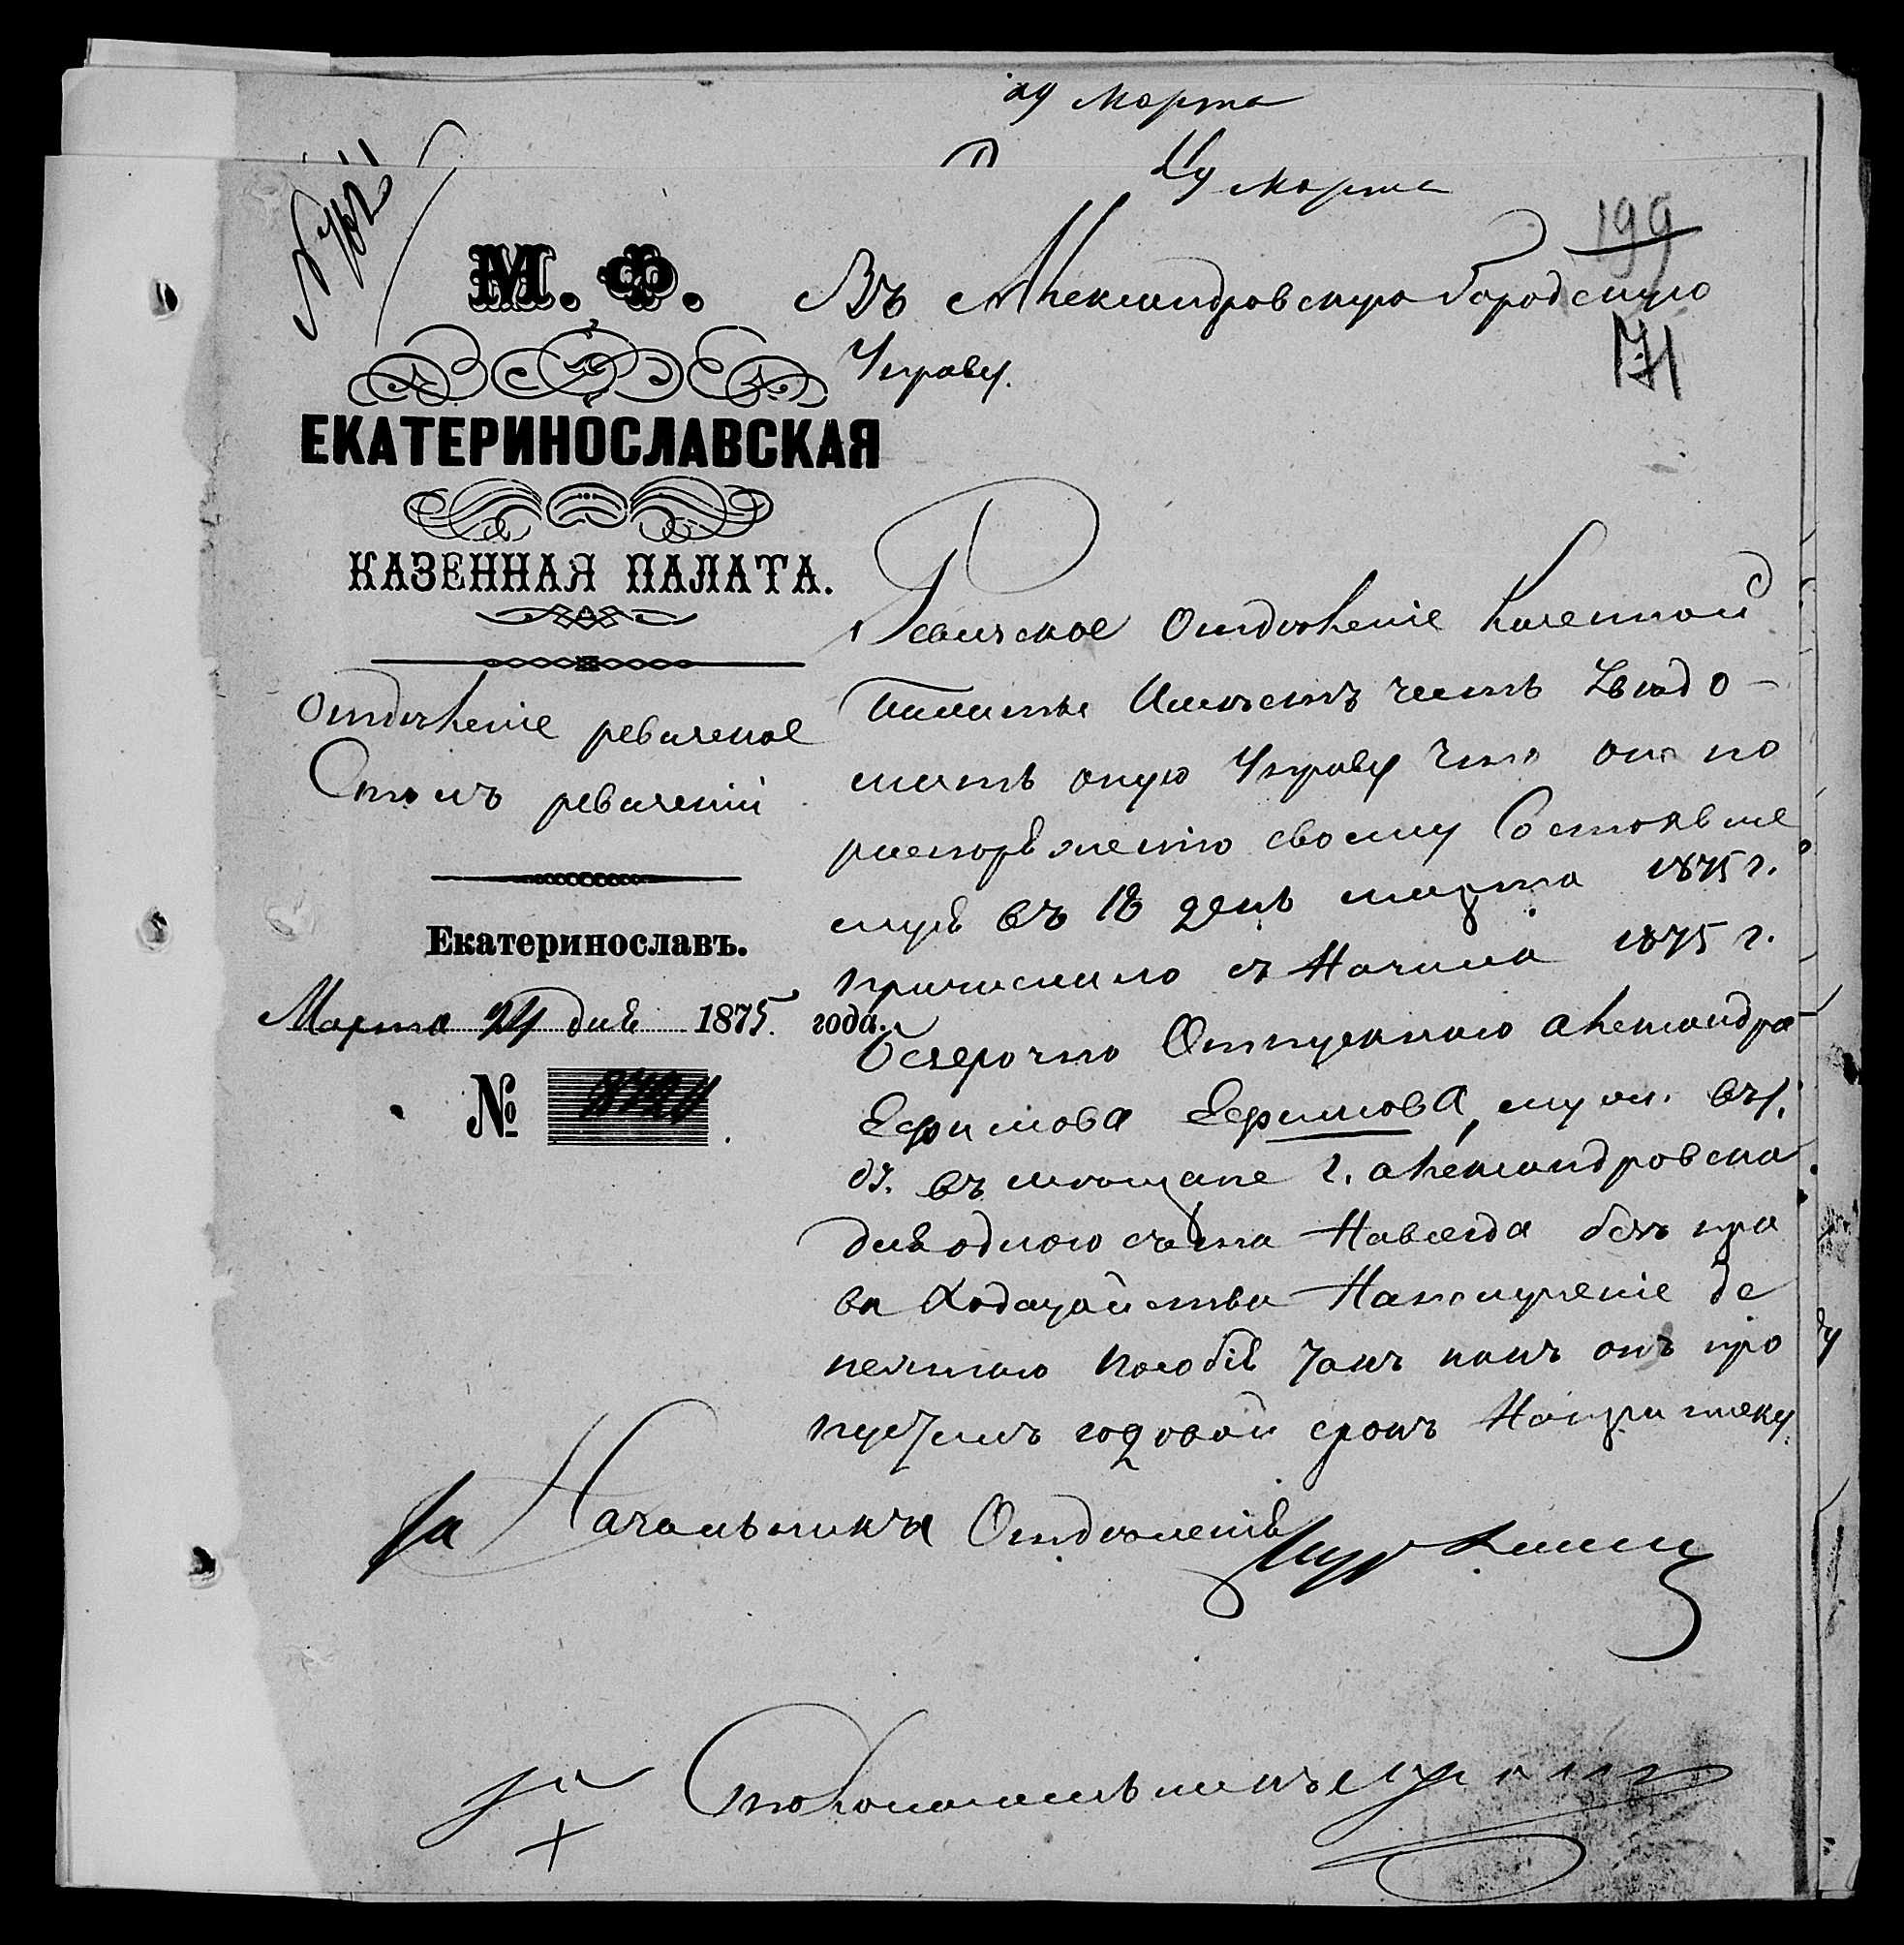 29 Марта
24 Марта
199
171
М. Ф.
ЕКАТЕРИНОСЛАВСКАЯ
КАЗЕННАЯ ПАЛАТА.
Отдѣленіе ревизское
Столъ ревизскій
Екатеринославъ.
Марта 24 дня 1875 года.
№
Въ Александровскую Городскую
Управу.
Ревизское Отдѣленіе Казенной
Палаты Имѣетъ честь Увѣдо-
мить оную Управу что оно по
распоряженію своему Состоявше
муся въ 18 день марта 1875 г.
причислило съ Начала 1875 г.
безсрочно Отпускного Александра
Ефимова Ефимова,
въ мѣщане г. Александровска
для одного счета Навсегда безъ пра
ва Ходатайства На полученіе де
нежнаго пособія такъ какъ онъ про
пустилъ годовой срокъ
За Начальника Отдѣленія
Столоначальникъ